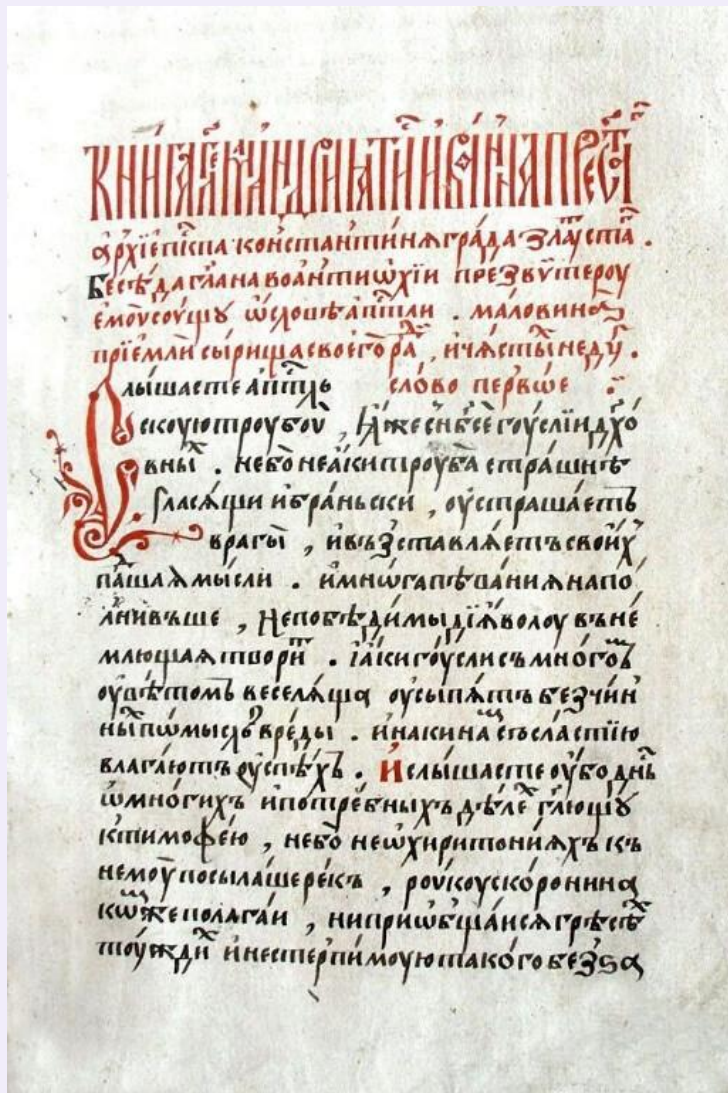 Книга гл҃емаѧ Андриѧтиі Иѡанна прес҃та
архїепⷭ҇кпа константинѧ града злаⷮꙋстаⷢ҇.
бесѣда гл҃ана воантиѡхїи презвѵтероу
емоу̀соущꙋ ѡ҆словѣ а҆пⷭ҇тли . маловинаⷭ҇
прїемли сырища своегѡ раⷣ , и҆ча́стыⷯ недꙋⷢ҇ .
Слы́шасте а҆пⷭ҇тль сло́во пе́рвѡе
скоую троубоу̀ , ꙗ҆́же с҆нб҃се гоу́сли дх҃о
вныⷯ . небо̀ не а҆́ки троуба̀ стра́шнѣ
гласѧ́щи и҆бра́ньски , оу҆страша́етъ
врагы̀ , и҆въꙁставлѧ́етъ свои́хъ
па́шаѧ мы́сли . и҆мнѡ́га пѣва́ниѧ напо́
лнивъше , непобѣди́мы дїѧ́волоу въне́
млющаѧ твори́ⷮ . ꙗ҆́ки гоу́сли съ мно́гоⷨ
оу҆вѣ́томъ веселѧ́ща оу҆сыпѧ́тъ беꙁчи́н
ныⷯ по́мыслѡⷡ вре́ды . и҆на́ки на́щъ сла́стїю
влага́ютъ оу҆спѣ́хъ . И҆слы́шасте оу҆́бо дн҃ь
ѡ҆мно́гихъ и҆потре́бныхъ дѣ́лѣ гл҃ющꙋ
ктимофе́ю , небо̀ не ѡ҆хиритони́ѧхъ къ
немоу̀ посыла́ше ре́къ , роу́коу ско́ро нина
ко́гѡже полага́и , ни прїѡбща́исѧ грѣсѣⷯ
тоу́ждиⷯ и҆нестерпи́моую тако́го беꙁꙁа